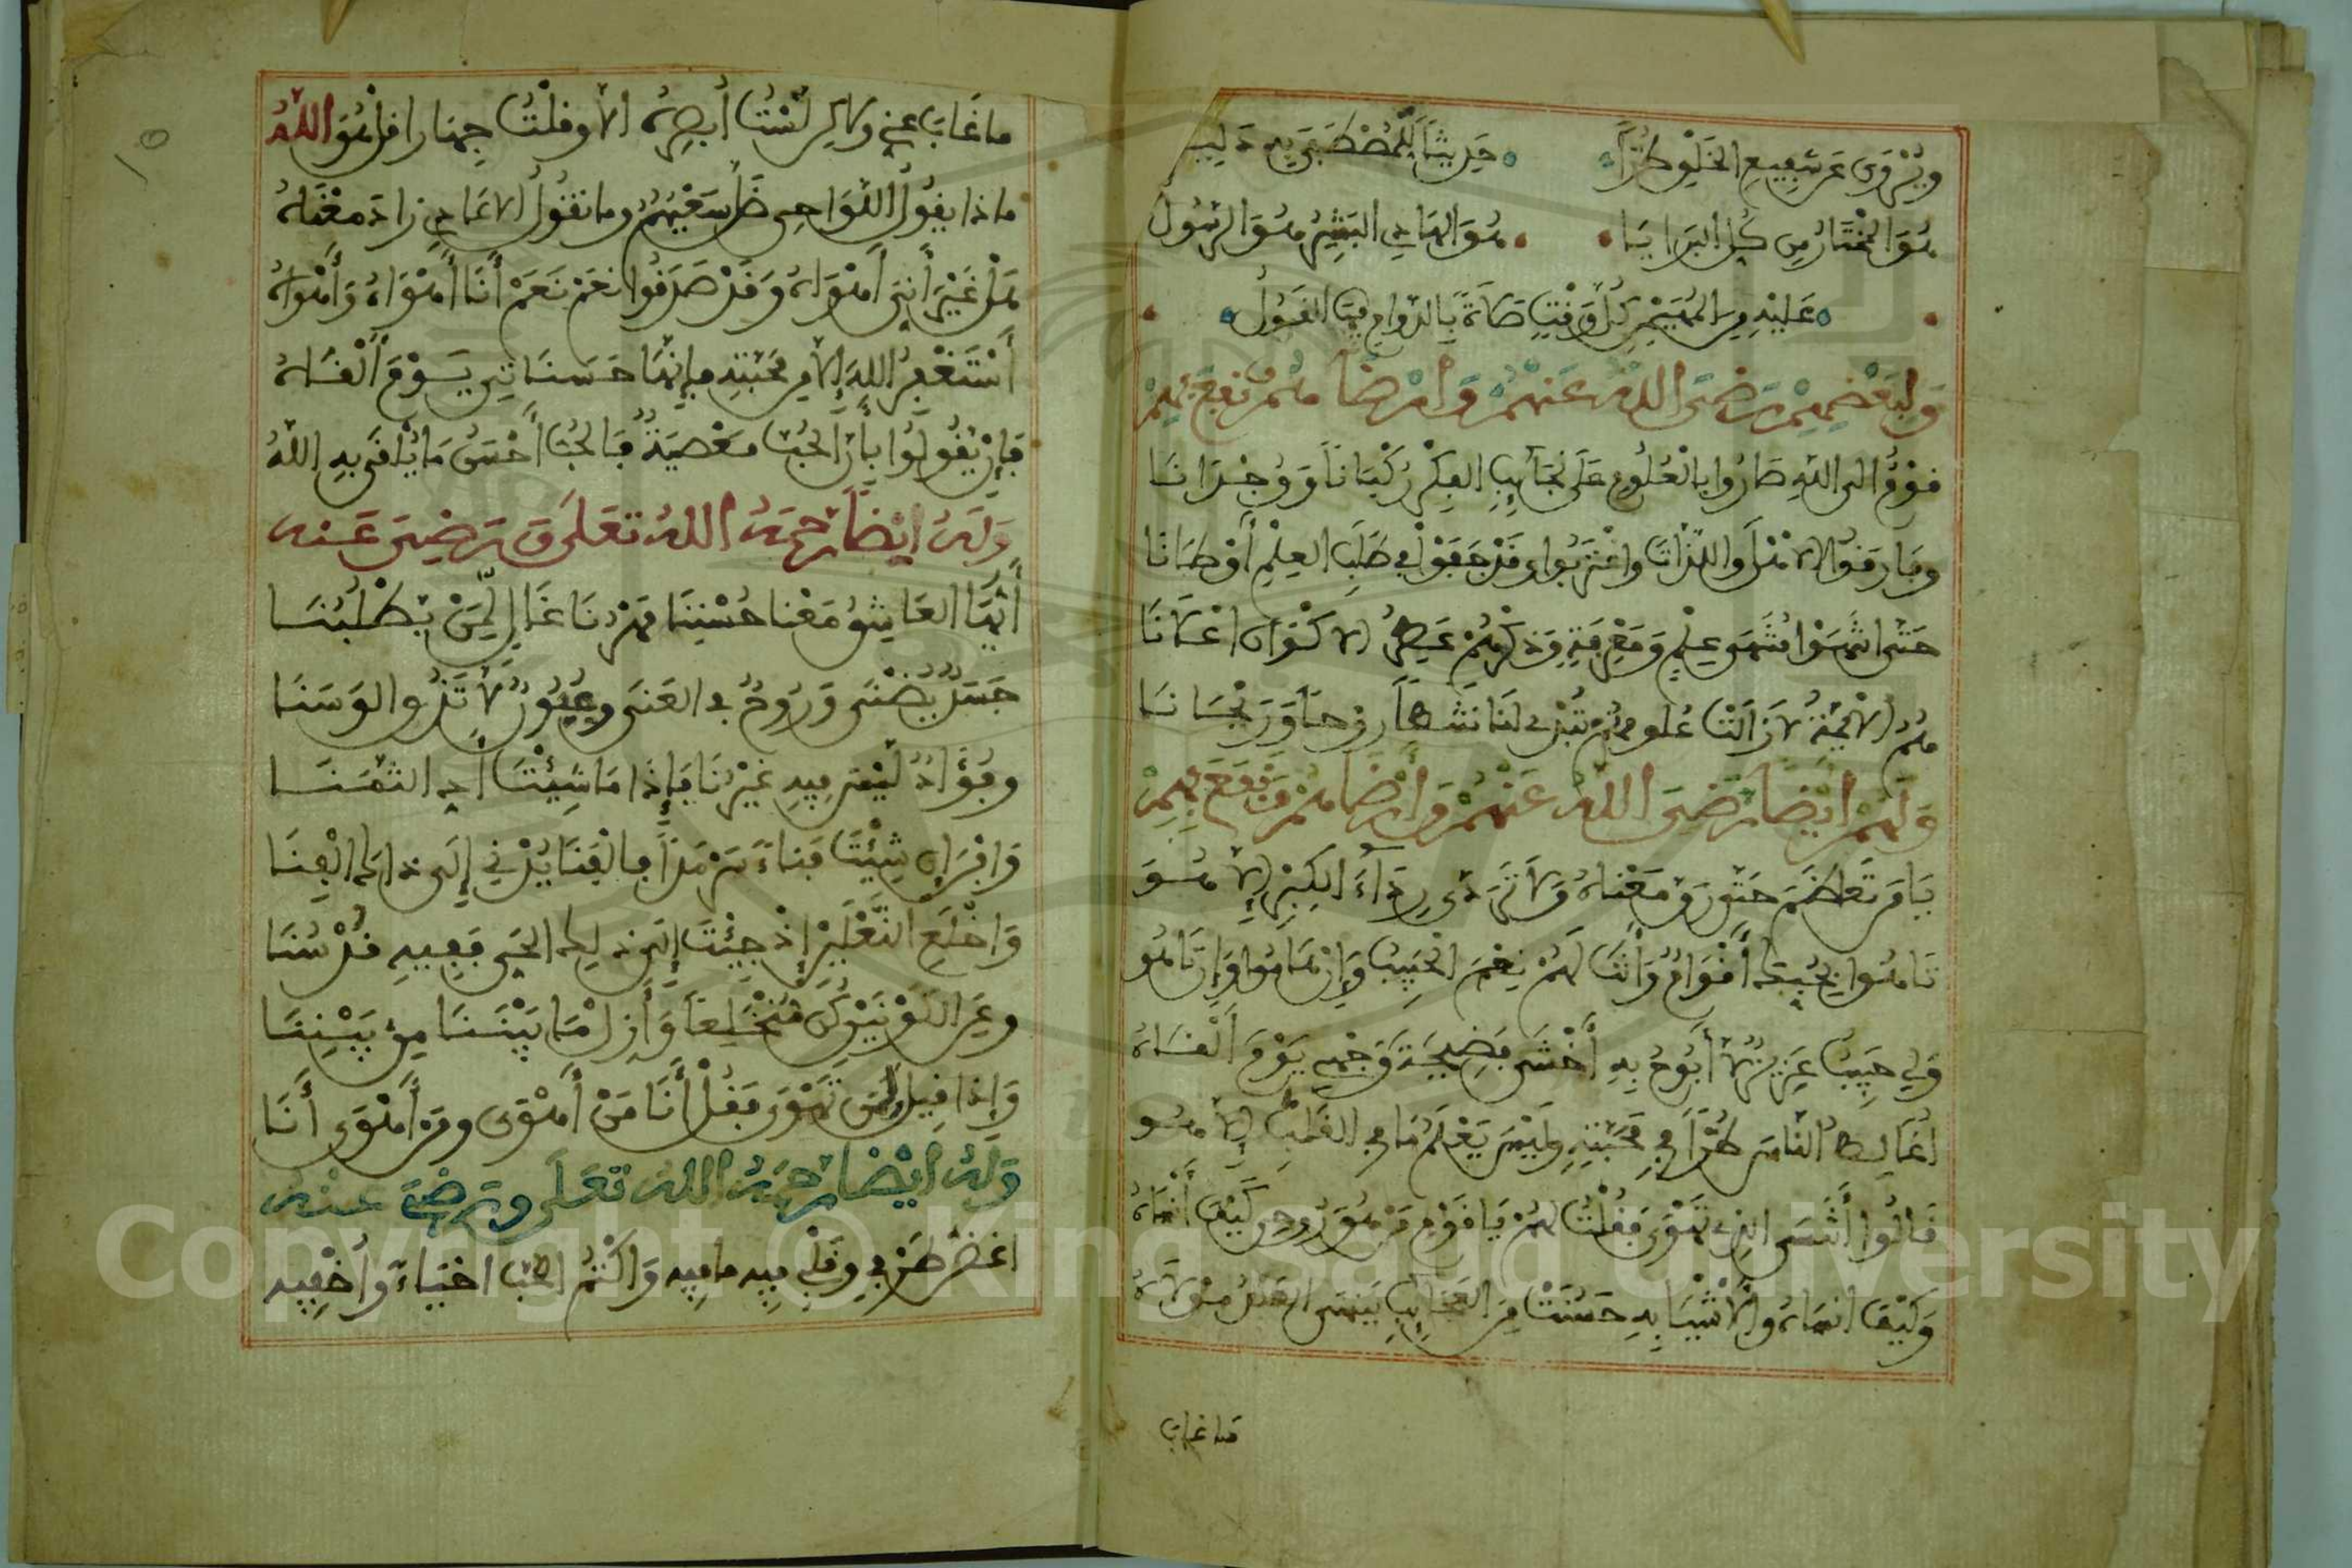 ويُرْوى عَن شَفِيعِ الخَلْقِ طُرًّا حَدِيثاً لِلْمُصْطَفَى بِهِ دَلِيـ
هُوَ المُخْتَارُ مِن كُلِّ البَرَايَا هُوَ الهَادِي البَشِيرُ هُوَ الرَّسُولُ
عَلَيْهِ مِنَ المُهَيْمِنِ كُلَّ وَقْتٍ صَلاَةً بِالدَّوَامِ فِيهَا القَبُولُ
وَلِبَعْضِهِمْ رَضِيَ اللهُ عَنْهُمْ وَأَرْضَاهُمْ وَنَفَعَ بِهِمْ
قَوْمٌ إلى اللهِ صَارُوا بِالْعُلُومِ عَلَى نَجَائِبِ الفِكْرِ رُكْبَاناً وَوُجْدَانَا
وفَارَقُوا الأَهْلَ واللَّذَّاتَ واغْتَرَبُوا وقَدْ جَفَوْا فِي طَلَبِ العِلْمِ أَوْطَانَا
حَتَّى انْتَهَوْا مُنْتَهَى عِلْمٍ وَمَعْرِفَةٍ وَذِكْرُهُمْ عَطِرُ الأَكْوَانِ إعْلاَنَا
هُمُ الأَئِمَّةُ لاَ زَالَتْ عُلُومُهُمُ تُهْدِي لَنَا نَشْطاً رَوْحاً وَرَيْحَانَا
وَلَهُمْ أَيْضاً رَضِيَ اللهُ عَنْهُمْ وَأَرْضَاهُمْ وَنَفَعَ بِهِمْ
يَا مَن تَعَاظَمَ حَتَّى رَقَّ مَعْنَاهُ وَلاَ تَرَدَّى رِدَاءَ الكِبْرِ إِلاَّ هُـوَ
تَاهُوا بِحُبِّكَ أَقْوَامٌ وَأَنْتَ لَهُمْ نِعْمَ الْحَبِيبُ وَإِنْ هَامُوا وَإِنْ تَاهُو
وَلِي حَبِيبٌ عَزِيزٌ لاَ أَبُوحُ بِهِ أَخْشَى فَضِيحَةَ وَجْهِي يَوْمَ أَلْقَـاهُ
أُغَالِطُ النَّاسَ طُرًّا فِي مَحَبَّتِهِ وَلَيْسَ يَعْلَمُ مَا فِي القَلْبِ إِلاَّ هُـو
قَالُوا أَتَنْسَى الذِي تَهْوَى فَقُلْتُ لَهُمْ يَا قَوْمِ مَنْ هُوَ رُوحِي كَيْفَ أَنْسَاهُ
وَكَيْفَ أنسَاهُ والأَشْيَا بِهِ حَسُنَتْ مِنَ العَجَائِبِ يَنْسَى العَبْدُ مَوْلاَهُ
ما غاب
ما غَابَ عَنِّي وَلاَكِن لَسْتُ أُبصِرُهُ إلاَّ وقُلْتُ جِهَارا قَلْ هُوَ اللهُ
ماذا يقُولُ اللَّوَاحِي ضَلَّ سَعْيُهُمُ وما تقُولُ الأَعَادِي زَادَ مَعْنَاهُ
هَلْ غَيْرَ أَنِّي أَهْوَاهُ وَقَدْ صَدَقُوا نَعَمْ نَعَمْ أَنَا أَهْوَاهُ وَأَهْوَاهُ
أَسْتَغْفِرُ اللهَ إلاَّ مِن مَحَبَّتِهِ فإِنَّهَا حَسَنَاتِي يَـوْمَ أَلْقَـاهُ
فَإِنْ يَقُولُوا بِأَنَّ الحُبَّ مَعْصِيَةٌ فَالحُبُّ أَحْسَنُ مَا يُلْقَى بِهِ اللهُ
وَلَهُ أَيْضاً رَحِمَهُ اللهُ تَعَلَى وَرَضِيَ عَنْه
أَيُّهَا العَاشِقُ مَعْنا حُسْنِنَا مَهْرُنَا غَالٍ لِّمَنْ يَـطْـلُبُنَـا
جَسَدٌ يُضْنَى وَرُوحٌ فِي العَنَى وعُيُونٌ لاَ تَذُوقُ الوَسَنَا
وفُؤَادٌ لَيْسَ فِيهِ غَيْرُنَا فَإِذَا مَا شِيْتَ أَدِّ الثَّمَـنَـا
وَافْنَ إِن شِيْتَ فَنَاءً سَرْمَداً فَالفَنَا يُدْنِي إِلَى ذَاكَ الْفِنَا
وَاخْلَعِ النَّعْلَيْنِ إِذْ جِيْتَ إِلَى ذَلِكَ الحَيِّ فَفِيهِ قُدْسُنَا
وعَنِ الكَوْنَيْنِ كُن مُنْخَلِعاً وَأَزِلْ مَا بَيْنَـنَا مِن بَيْنِنَـا
وَإِذَا قِيلَ لِمَن تَهْوَى فَقُلْ أَنَا مَنْ أَهْوَى ومَنْ أَهْوَى أَنَا
وَلَهُ أَيْضاً رَحِمَهُ اللهُ تَعَلَى ورَضِيَ عَنْهُ
أغضُّ طَرْفِي وَقَلْبِي فِيهِ مَا فِيهِ وَأَكْتُمُ الحُبَّ أحْيَاءً وَأُخْفِيهِ
Copyright © King Saud University